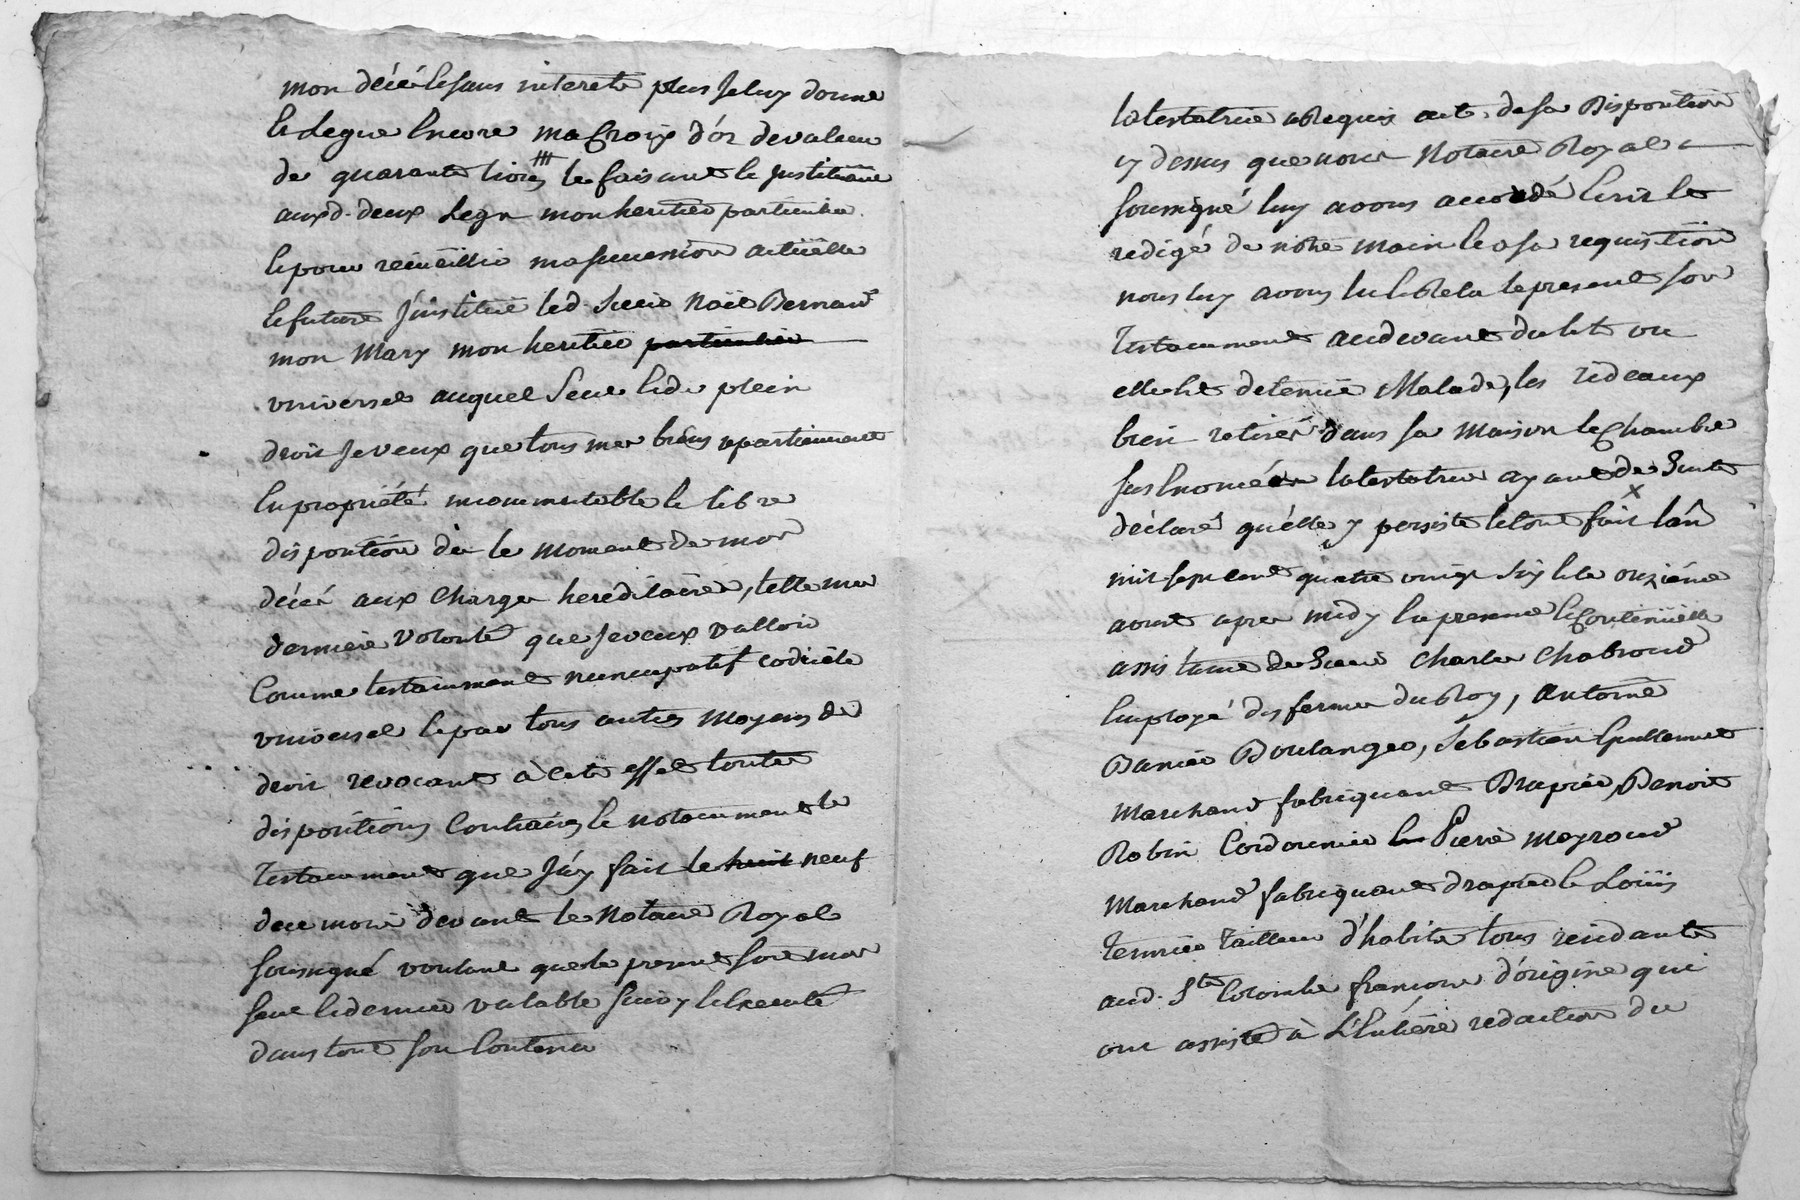 mon décés sans interets plus je luy donne
et legue encore ma croix d'or de valeur
de quarante livres le faisant et instituant
aux d. deux legs mon heritier particulier
et pour recüeillir ma succession actüelle
et future j'institüe led. sieur Noël Bernard
mon mary mon heritier particulier
universel auquel seul et de plein
droit je veux que tous mes biens apartiennent
en propriété incommutable et libre
disposition dés le moment de mon
décés aux charges hereditaires, telle ma
derniere volonté que je veux valloir
comme testament nuncupatif codicile
universel et par tous autres moyens de
droit revocant à cet effet toutes
dispositions contraires et notamment le
testament que j'ay fait le huit neuf
de ce mois devant le notaire Royal
soussigné voulant que le present soit mon
seul et dernier valable suivy et executé
dans tout son contenu
la testatrice a requis acte de sa disposition
cy dessus que nous Notaire Royal
soussigné luy avons accordé écrit et
redigé de notre main et a sa requisition
nous luy avons lu et relu le present son
testament audevant du lit ou
elle est detenüe malade, les rideaux
bien retirés dans sa maison et chambre
la testatrice ayant de suite
déclaré qu'elle y persiste le tout fait l'an
mil sept cent quatre vingt six et le onzième
aout apres midy en presence et continüelle
assistance de sieurs Charles Chabroud
employé des fermes du Roy, Antoine
Danier Boulanger, Sébastien Guillermet
marchand fabriquant Drapier, Benoit
Robin Cordonnier Pierre Meyroud
marchand fabriquant drapier et Loüis
Ternier tailleur d'habits tous residants
aud. Ste Colombe francois d'origine qui
ont assisté à l'entière redaction du